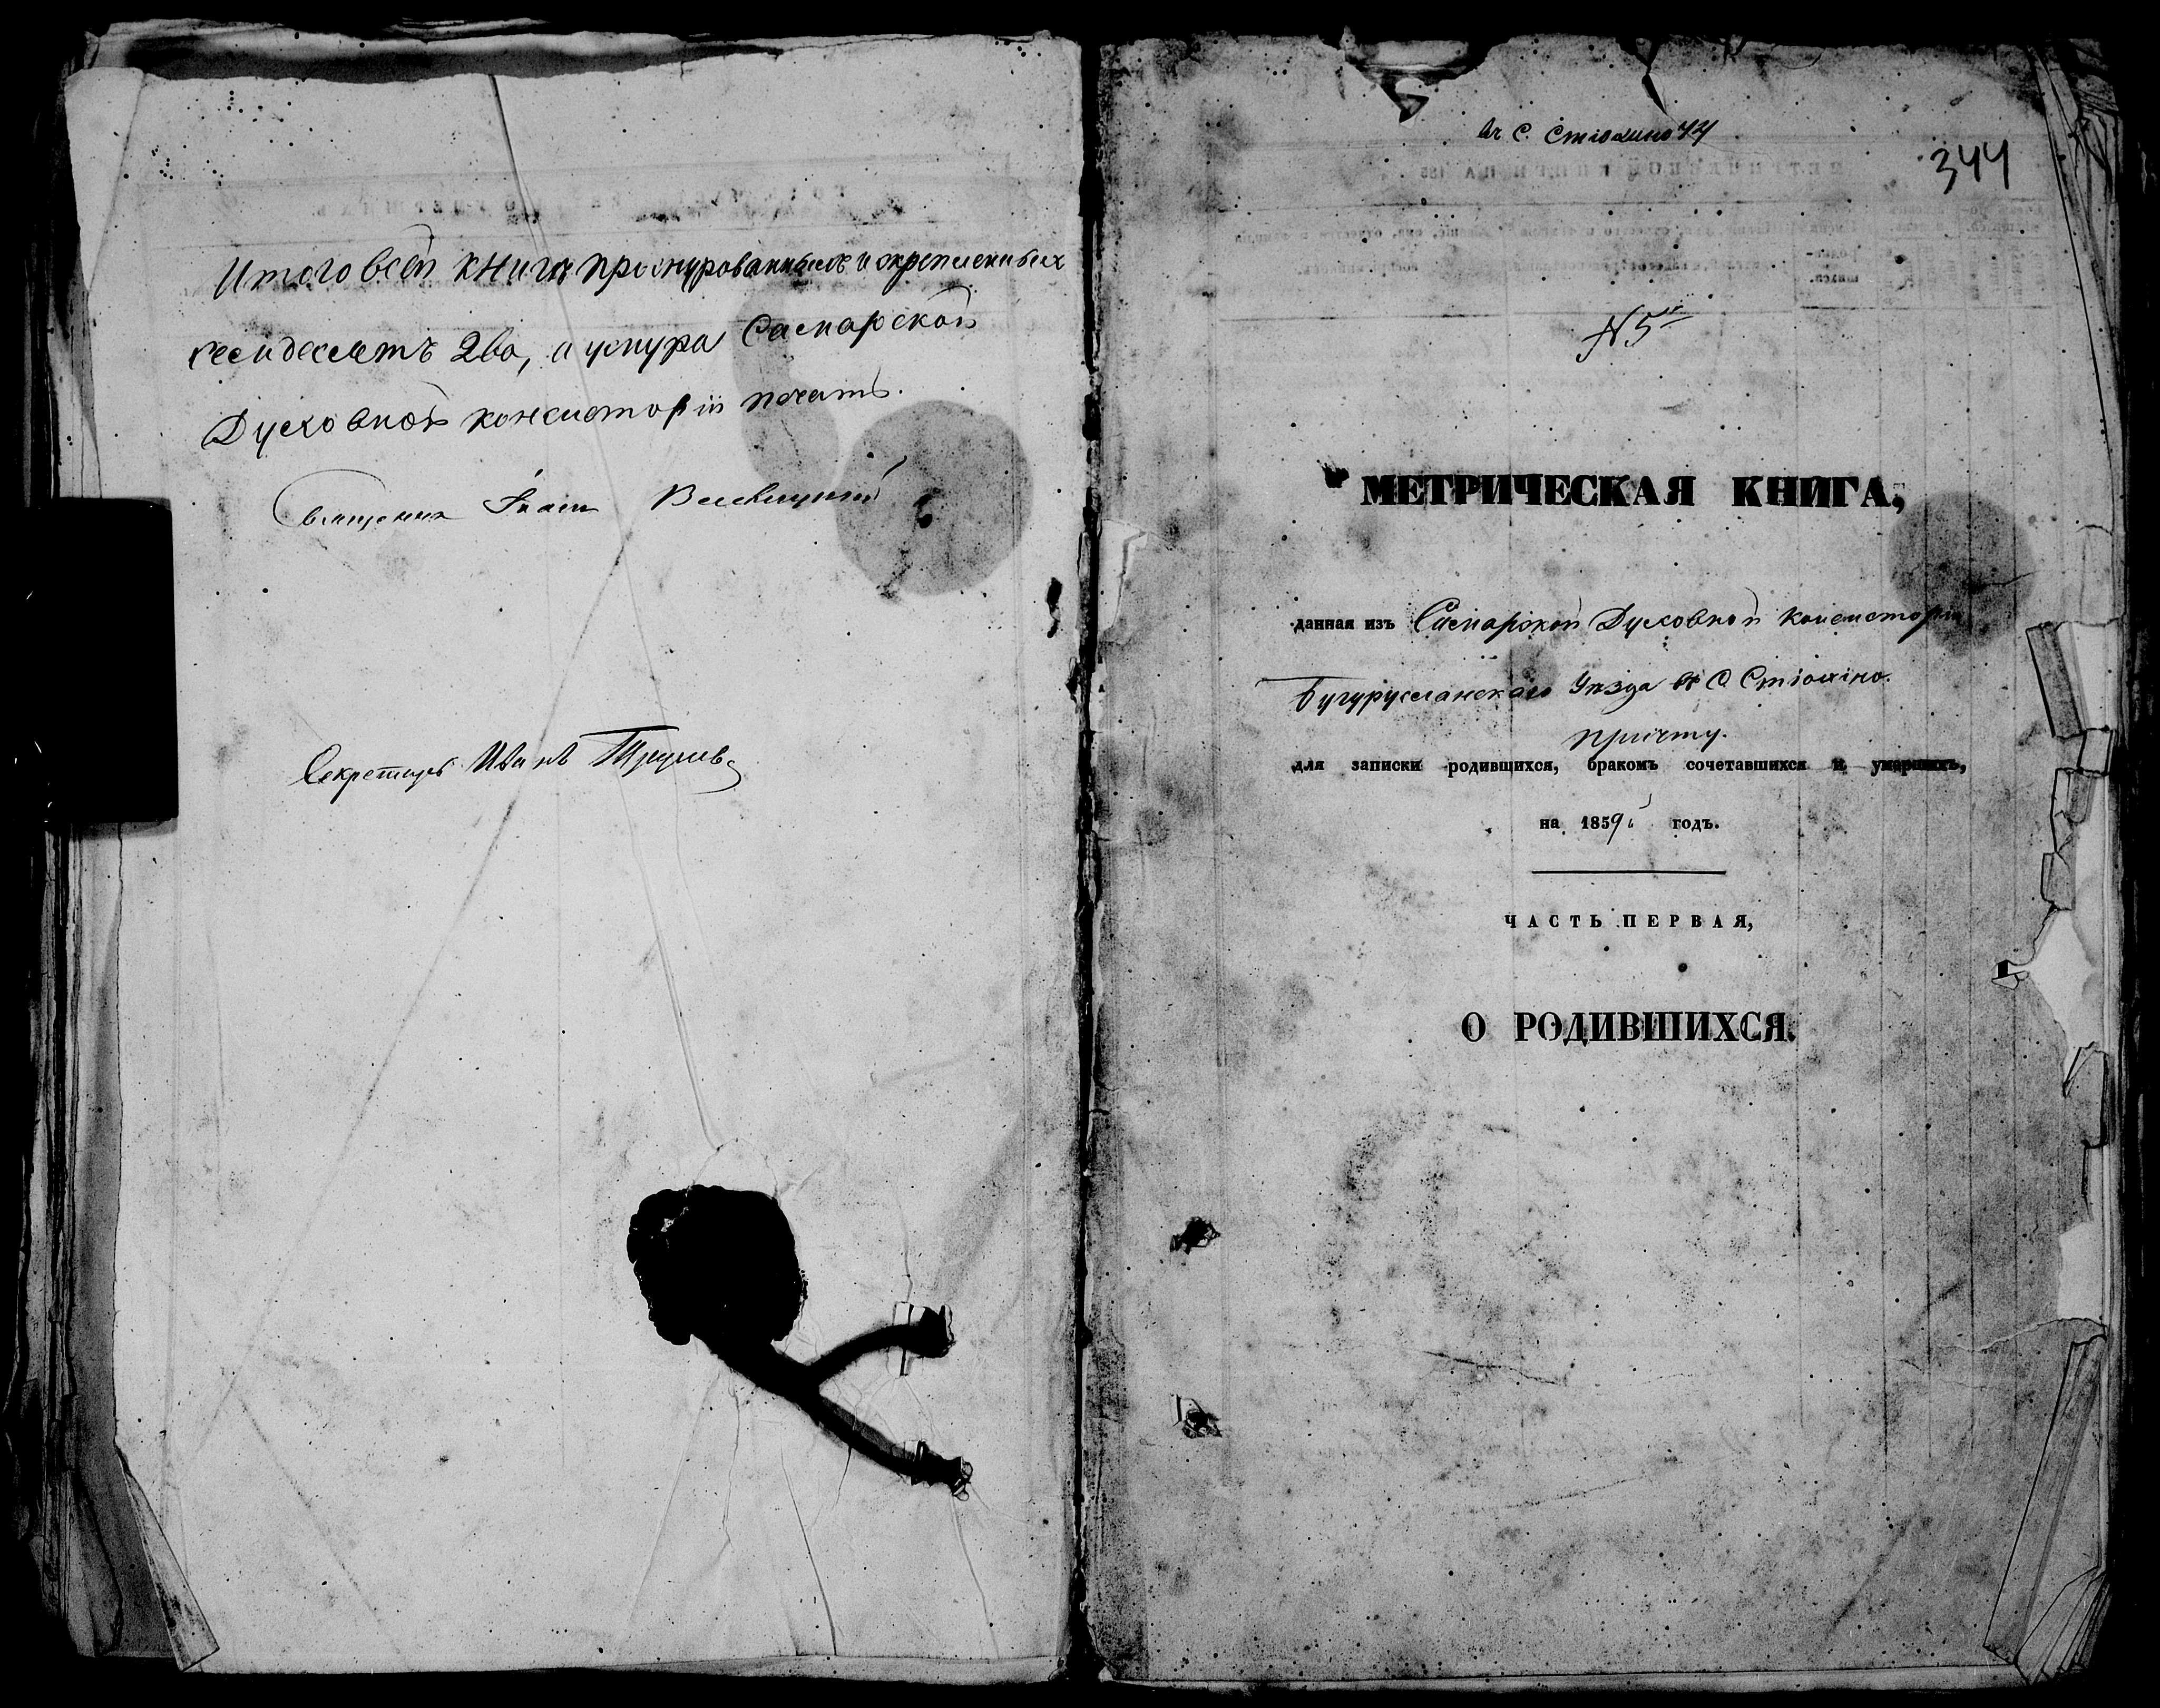 Итого въ сей книгѣ прошнурованныхъ и скрепленныхъ
семдесятъ два, и у шнура Самарской
Духовной консисторіи печать.
Священникъ Іоаннъ
Секретарь Иванъ
въ С. Стюхино 44
344
№ 5й
МЕТРИЧЕСКАЯ КНИГА,
данная изъ Самарской Духовной Консисторіи
Бугурусланскаго Уѣзда въ С. Стюхино.
причту.
для записки родившихся, бракомъ сочетавшихся и умершихъ,
на 1859й годъ.
ЧАСТЬ ПЕРВАЯ,
О РОДИВШИХСЯ.